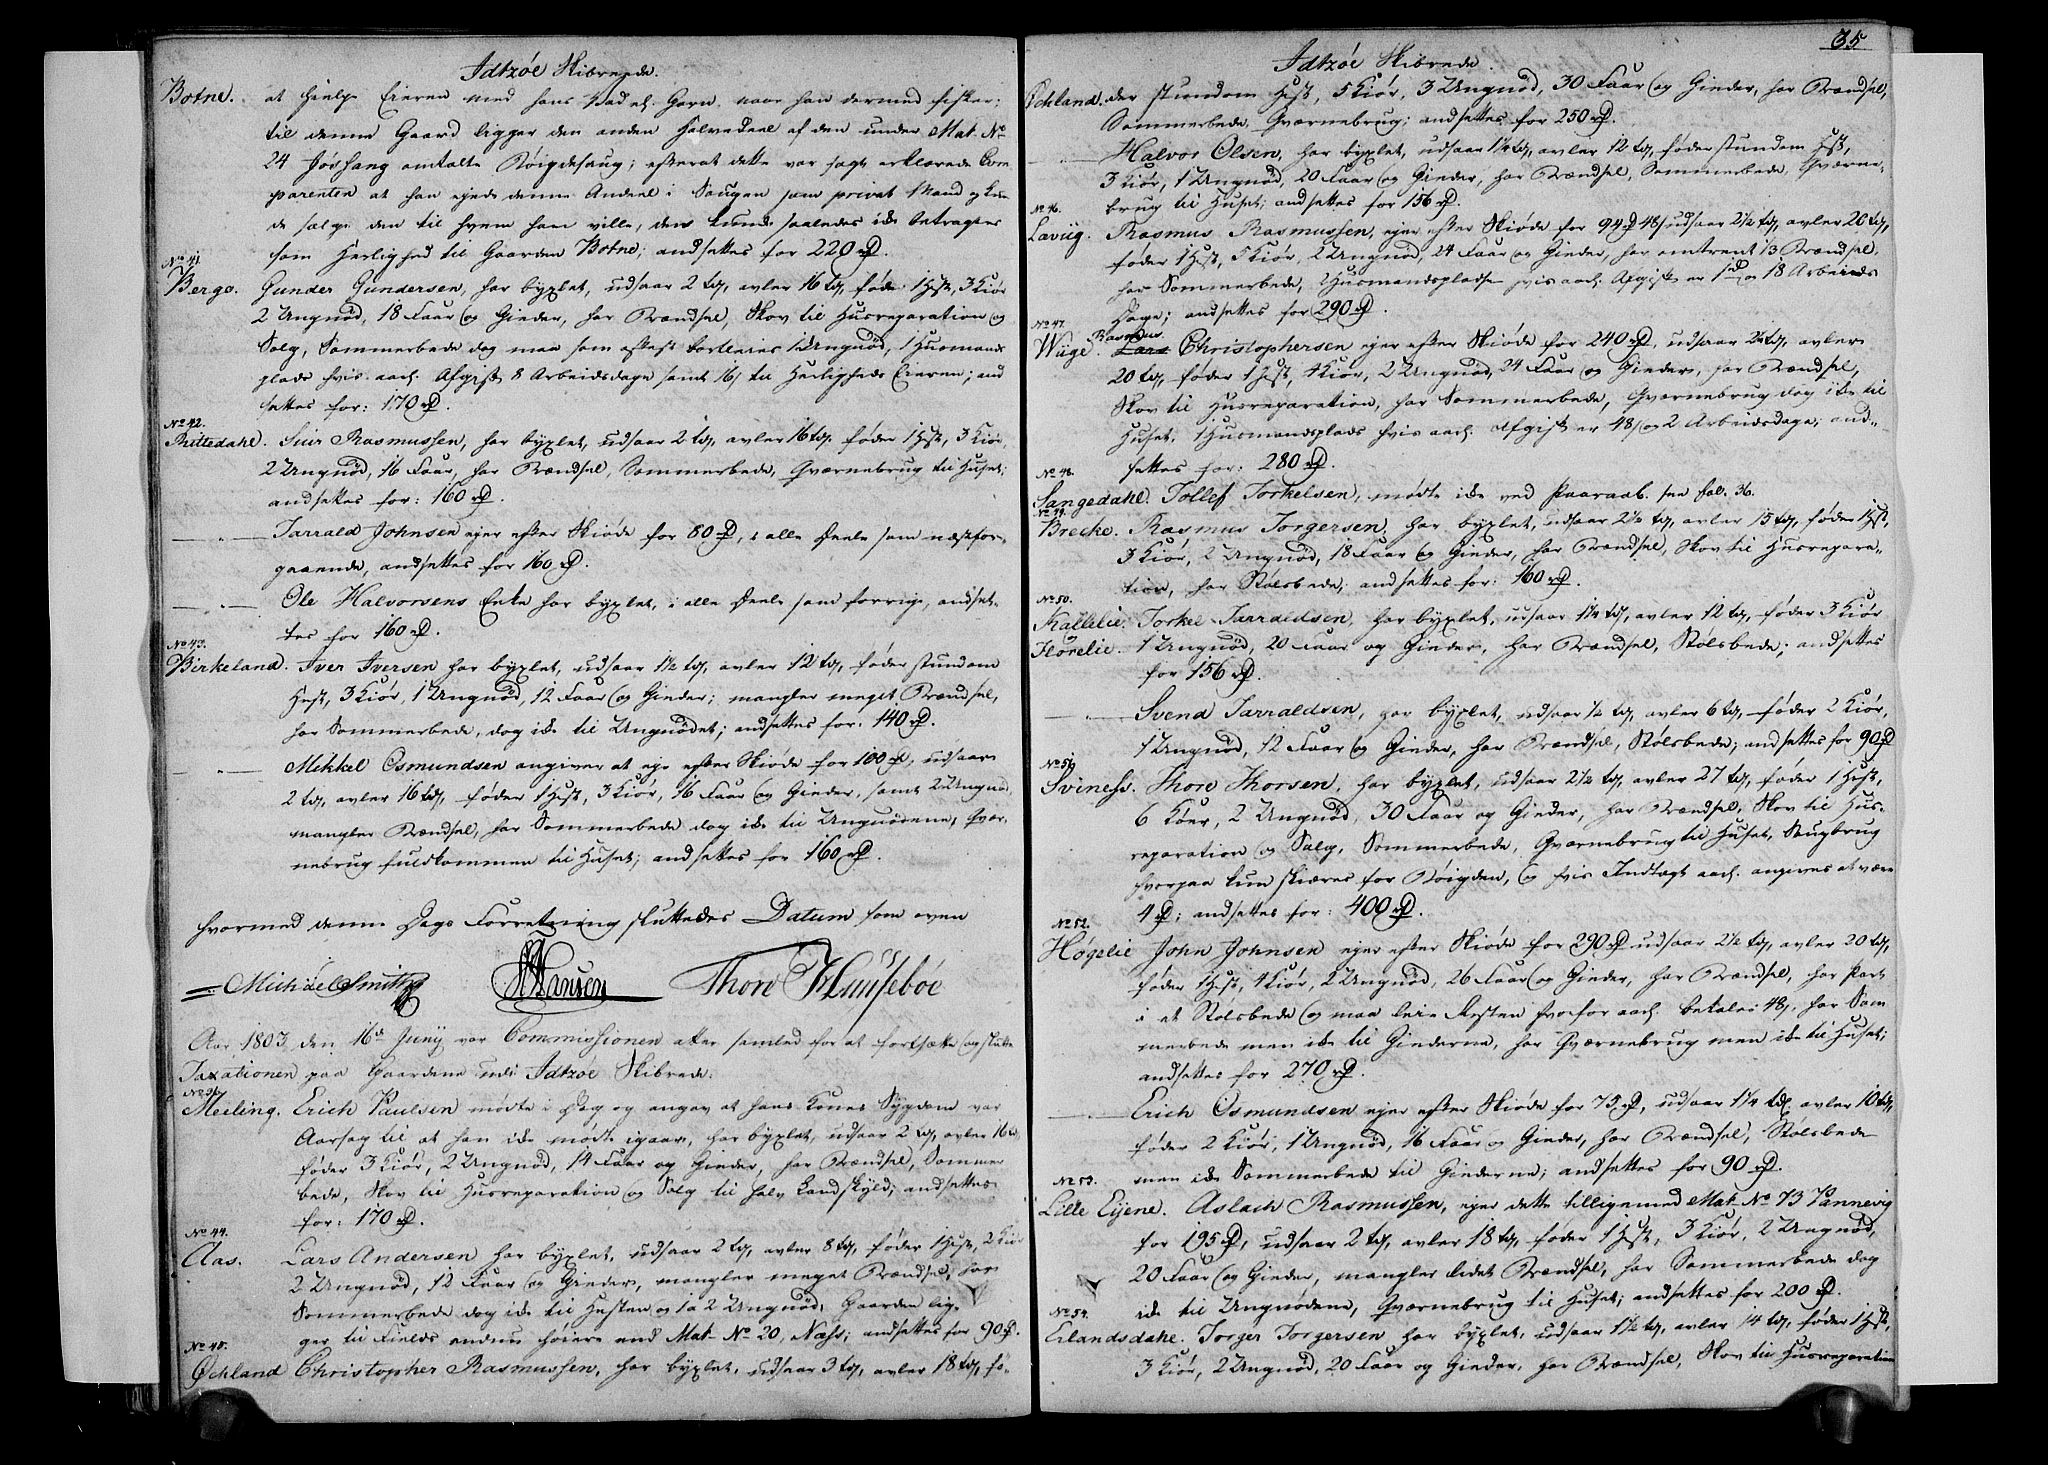 Jdtzöe Skibrede.
Botne. at hielpe Eieren med hans Vad el. Garn, naar han dermed fisker;
til denne Gaard ligger den anden halvedeel af den under Mat. No
24 Høshang omtalte Bøigdesaug; efterat dette var sagt erklærede Com-
parenten at han ejede denne Andeel i Saugen som privat Mand og kun-
de sælge den til hvem han ville, den kunde saaledes ikke betragtes
som Herlighed til Gaarden Botne; andsettes for 220 rd.
No 41.
Berge. Gunder Gundersen, har byxlet, udsaar 2 td, avler 16 td, føder 1 Hest, 3 Kiör
2 Ungnöd, 18 Faar og Gieder, har Brændsel, Skov til Husreparation og
Salg, Sommerbede dog maa som oftest bortleies 1 Ungnöd, 1 Husmands
plads hvis aarl. Afgift 8 Arbeidsdage samt 16 s til Herligheds Eieren; and
settes for: 170 rd.
No 42.
Rittedahl. Siur Rasmussen, har byxlet, udsaar 2 td, avler 16 td, føder 1 Hest, 3 Kiör,
2 Ungnöd, 16 Faar, har Brændsel, Sommerbede, Qværnebrug til Huset;
andsettes for: 160 rd.
— " — Tarrald Johnsen ejer efter Skiöde for 80 rd, i alle Deele som næstfor-
gaaende, andsettes for 160 rd.
— " — Ole Halvorsens Enke har byxlet, i alle Deele som forrige, andset-
tes for 160 rd.
No 43.
Birkeland. Iver Iversen har byxlet, udsaar 1½ td, avler 12 td, føder stundom
Hest, 3 Kiör, 1 Ungnöd, 12 Faar og Gieder; mangler meget Brændsel,
har Sommerbede, dog ikke til Ungnödet; andsettes for: 140 rd.
— " — Mikkel Osmundsen angiver at eje efter Skiöde for 100 rd, udsaar
2 td, avler 16 td, føder 1 Hest, 3 Kiör, 16 Faar og Gieder, samt 2 Ungnöd,
mangler Brændsel, har Sommerbede dog ikke til Ungnödene, Qvær-
nebrug fuldkommen til Huset; andsettes for 160 rd.
hvormed denne Dags Forretning sluttedes Datum som oven
Michael Smith HHansen Thore Huusebøe
Aar 1803 den 16de Junij var Commissionen atter samled for at fortsætte og slutte
Taxationen paa Gaardene udi Jdtzöe Skibrede.
Meling. Erich Paulsen mödte i Dag og angav at hans Kones Sygdom var
Aarsag til at han ikke mödte igaar, har byxlet, udsaar 2 td, avler 16 td,
føder 3 Kiör, 2 Ungnöd, 14 Faar og Gieder, har Brændsel, Sommer
bede, Skov til Husreparation og Salg til halv Landskyld; andsettes
for: 170 rd.
No 44.
Aas. Lars Andersen har byxlet, udsaar 2 td, avler 8 td, føder 1 Hest, 2 Kiör
2 Ungnöd, 12 Faar og Gieder, mangler meget Brændsel, har
Sommerbede dog ikke til Hesten og 1 à 2 Ungnöd, Gaarden lig-
ger til Fields endnu höiere end Mat. No 20, Næss; andsettes for 90 rd.
No 45.
Öchland Christopher Rasmussen, har byxlet, udsaar 3 td, avler 18 td, fö-
35
Jdtzöe Skibrede.
Öchland. der stundom Hest, 5 Kiör, 3 Ungnöd, 30 Faar og Gieder, har Brændsel,
Sommerbede, Qværnebrug; andsettes for 250 rd.
— " — Halvor Olsen, har byxlet, udsaar 1¼ td, avler 12 td, føder stundom Hest,
3 Kiör, 1 Ungnöd, 20 Faar og Gieder, har Brændsel, Sommerbede, Qværne-
brug til Huset; andsettes for 156 rd.
No 46.
Laviig. Rasmus Rasmussen, ejer efter Skiöde for 94 rd 48 s udsaar 2½ td, avler 20 td,
føder 1 Hest, 5 Kiör, 2 Ungnöd, 24 Faar og Gieder, har omtrent 1/3 Brændsel,
har Sommerbede, 2 Husmandspladse hvis aarl. Afgift er 1 rd og 18 Arbeids
Dage; andsettes for 290 rd.
No 47.
Rasmus
Wiige. Lars Christophersen ejer efter Skiöde for 240 rd, udsaar 2½ td, avler
20 td, føder 1 Hest, 4 Kiör, 2 Ungnöd, 24 Faar og Gieder, har Brændsel,
Skov til Husreparation, har Sommerbede, Qværnebrug dog ikke til
Huset, 1 Husmandsplads hvis aarl. Afgift er 48 s og 2 Arbeidsdage; and-
settes for: 280 rd.
No 48.
Sangedahl. Tollef Torkelsen, mödte ikke ved Paaraab. see Fol. 36.
No 49.
Brecke. Rasmus Torgersen, har byxlet, udsaar 2½ td, avler 15 td, føder 1 Hest,
3 Kiör, 2 Ungnöd, 18 Faar og Gieder, har Brændsel, Skov til Husrepara-
tion, har Stölsbede; andsettes for: 160 rd.
No 50.
Kallelie. Torkel Tarraldsen, har byxlet, udsaar 1¼ td, avler 12 td, føder 3 Kiör
Flörelie. 1 Ungnöd, 20 Faar og Gieder, har Brændsel, Stölsbede; andsettes
for 156 rd.
— " — Svend Tarraldsen, har byxlet, udsaar ½ td, avler 6 td, føder 2 Kiör,
1 Ungnöd, 12 Faar og Gieder, har Brændsel, Stölsbede; andsettes for 90 rd
No 51.
Sviness. Thore Thorsen, har byxlet, udsaar 2½ td, avler 27 td, føder 1 Hest,
6 Köer, 2 Ungnöd, 30 Faar og Gieder, har Brændsel, Skov til Hus-
reparation og Salg, Sommerbede, Qværnebrug til Huset, Saugbrug
hvorpaa kun skiæres for Bøigden, og hvis Indtægt aarl. angives at være
4 rd; andsettes for: 400 rd.
No 52.
Høgelie John Johnsen ejer efter Skiöde for 290 rd udsaar 2½ td, avler 20 td,
føder 1 Hest, 4 Kiör, 2 Ungnöd, 26 Faar og Gieder, har Brændsel, har Part
i et Stölsbede og maa leie Resten hvorfor aarl. betales 48 s, har Som
merbede men ikke til Giederne, har Qværnebrug men ikke til Huset;
andsettes for 270 rd.
— " — Erich Osmundsen ejer efter Skiöde for 75 rd, udsaar 1¼ td, avler 10 td,
føder 2 Kiör, 1 Ungnöd, 16 Faar og Gieder, har Brændsel, Stölsbede
men ikke Sommerbede til Giederne; andsettes for 90 rd.
No 53.
Lille Eijene. Aslach Rasmussen, ejer dette tilligemed Mat. No 73 Pannevig
for 195 rd, udsaar 2 td, avler 18 td, føder 1 Hest, 3 Kiör, 2 Ungnöd,
20 Faar og Gieder, mangler lidet Brændsel, har Sommerbede dog
ikke til Ungnödene, Qværnebrug til Huset; andsettes for 200 rd.
No 54.
Erlandsdahl. Torger Torgersen har byxlet, udsaar 1½ td, avler 14 td, føder 1 Hest,
3 Kiör, 2 Ungnöd, 20 Faar og Gieder, har Brændsel, Skov til Husreparation